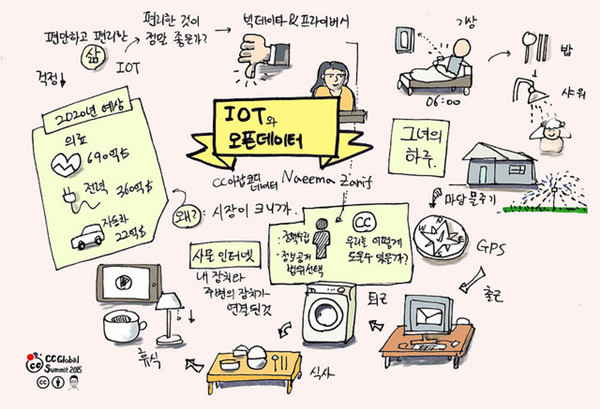 편안하고 편리한
삶
IOT
편리한 것이
정말 좋은가?
빅데이타&프라이버시
걱정↓
2020년 예상
의료
690억$
전력
360억$
자동차
22억$
왜?: 시장이 크니까.
IOT와
오픈데이터
CC아랍코디
네이터
Naeema Zarif
그녀의
하루.
기상
06:00
밥
샤워
마당 물주기
GPS
출근
퇴근
식사
휴식
사물 인터넷
내 장치와
주변의 장치가
연결된것
CC
· 정책수립
· 정보공개
범위선택
우리는 어떻게
도울수 있을까?
CC Global
Summit 2015